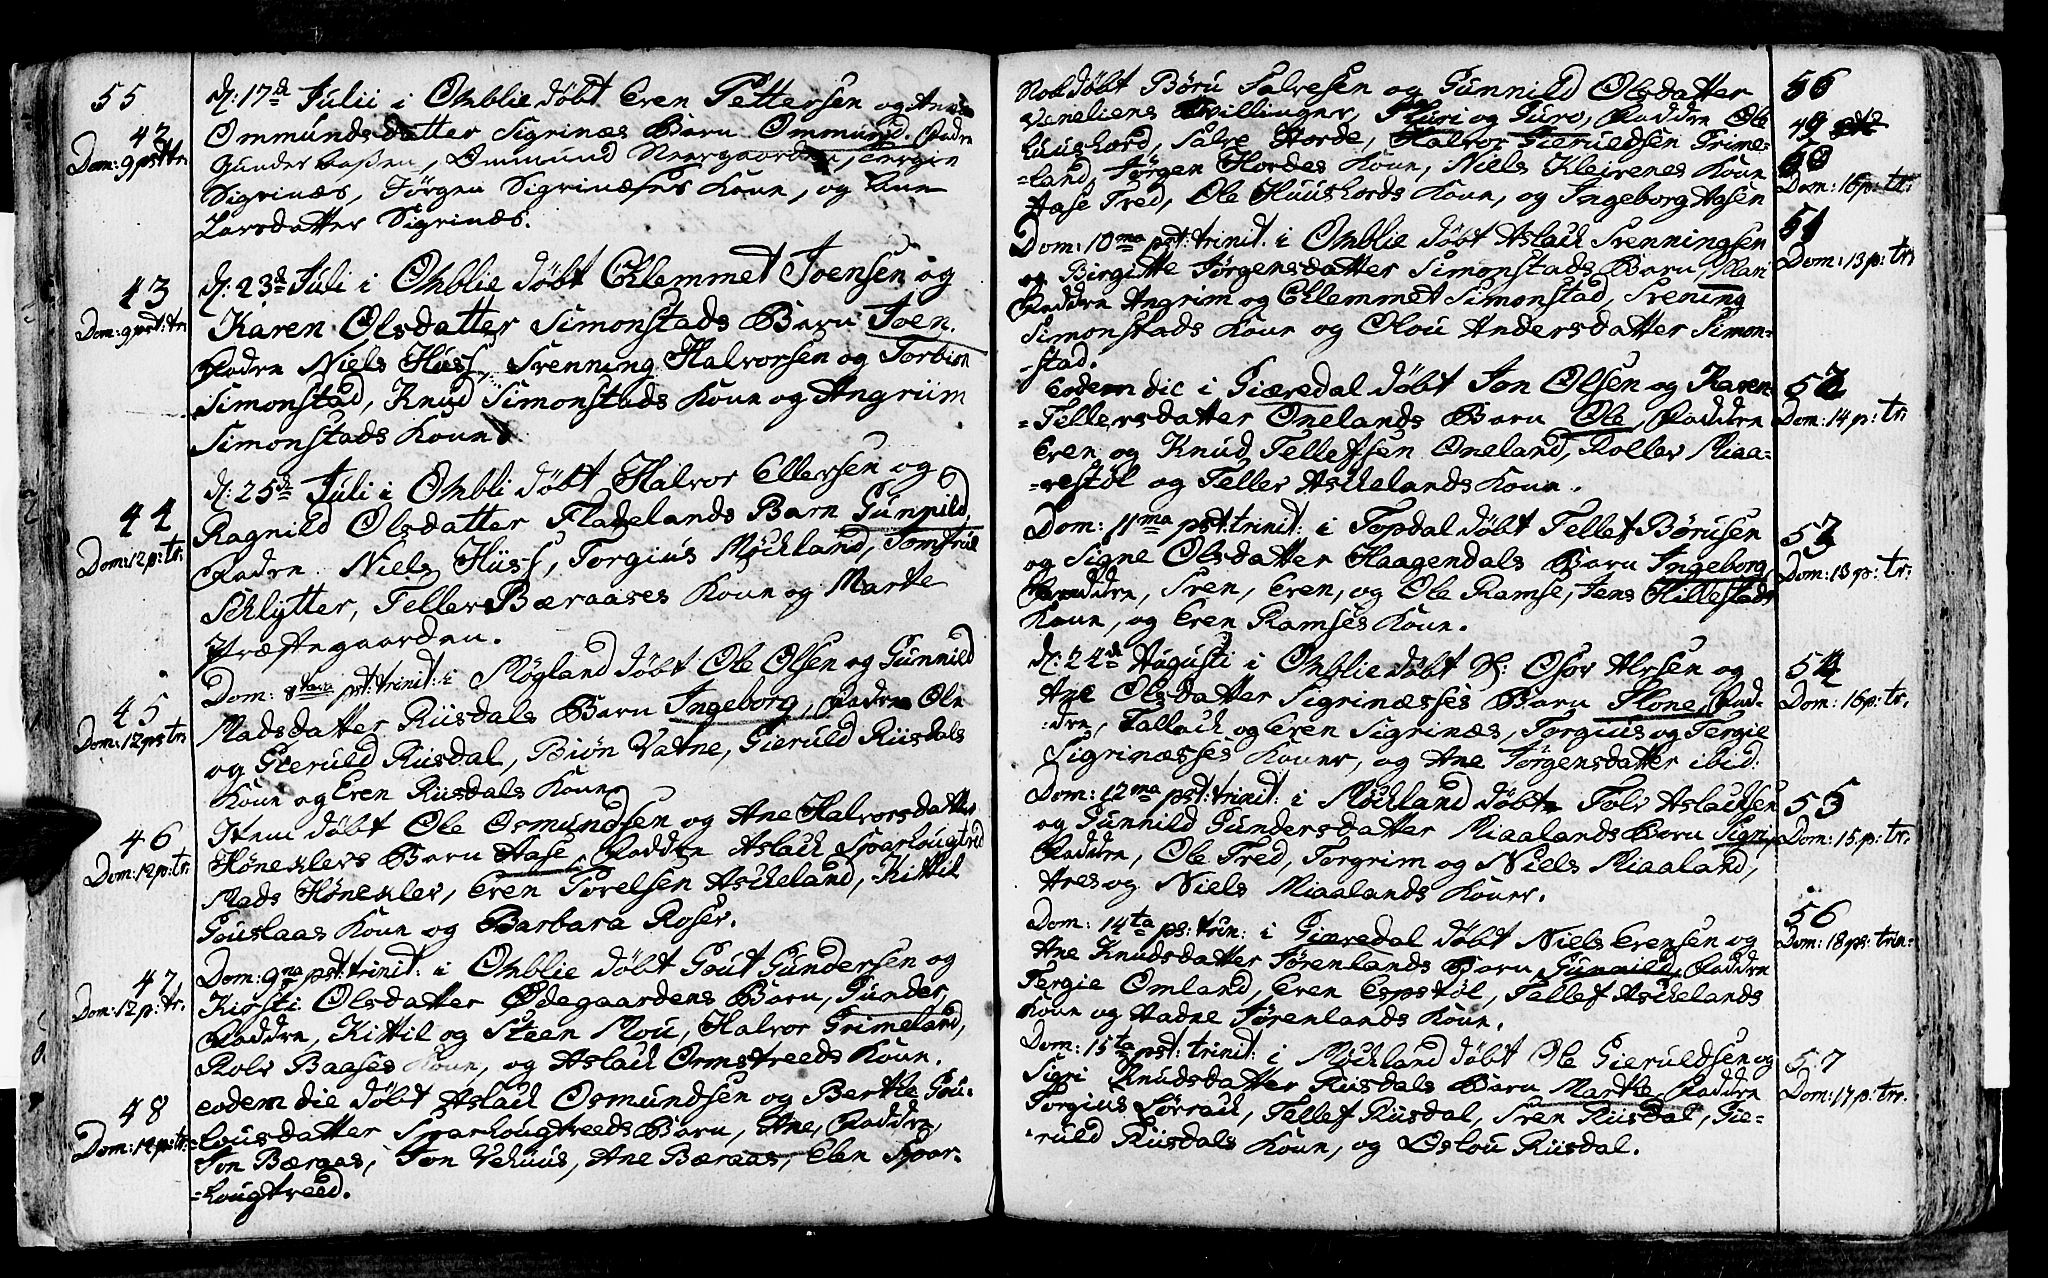 55
42
Dom: 9 pst tr:
d: 17de Julii i Omblie døbt Even Pettersen og Anne
Ommundsdatter Sigrinæs Barn Ommund. Faddre
Gunder, Ommund Neergaarden, Tergie
Sigrinæs, Jørgen Sigrinæses Koun, og Ane
Larsdatter Sigrinæs.
43
Dom: 9 pst: tr:
d: 23de Juli i Omblie døbt Chlemmet Joensen og
Karen Olsdatter Simonstads Barn Joen.
Fadre Niels Hüss, Svenning Halvorsen og Torbiøn
Simonstad, Knud Simonstads Koun og Angrim
Simonstads Koun.
44
Dom: 12 p: tr:
d: 25de Juli i Ombli døbt Halvor Ellevsen og
Ragnild Olsdatter Fladelands Barn Gunnild,
Fadre. Niels Hüss, Torgius Møckland, Jomfrue
Schlytter, Tellev Bæraases Koun og Marte
Præstegaarden.
45
Dom: 12 ps tr:
Dom: 8tava pst: trinit: i Møgland døbt Ole Olsen og Gunnild
Madsdatter Riisdals Barn Ingeborg, Fadre Ole
og Gieruld Riisdal, Biøn Vatne, Gieruld Riisdals
Koun og Even Riisdals Koun
46
Dom: 12 p: tr:
Item døbt Ole Osmundsen og Ane Halvorsdatter
Hønekløvs Barn Aase, Faddre Aslach Svarhougtved
Mads Hønekløv, Even Torelsen Ascheland, Kittil
Gouslaas Koun og Barbara Roser.
47
Dom: 12 p: tr.
Dom: 9na pst: trinit: i Omblie døbt Gout Gundersen og
Kiøsti Olsdatter Ødegaardens Barn, Gunder,
Faddre, Kittil og Steen Mou, Halvor Grimeland,
Rolv Baases Koun, og Aslach Ormstveeds Koun.
48
Dom: 12 ps: tr:
eodem die døbt Aslach Osmundsen og Berthe Gou-
lousdatter Svarhougtveeds Barn, Ane, Faddre,
Jon Bæraas, Jon Vehuus, Ane Bæraas, Elen Svar-
=hougtveed.
Nok døbt Børu Salvesen og Gunnild Olsdatter
Veneliens Tvillinger, Thuri og Guro, Faddre Ole
Huushord, Salve Horde, Halvor Gieruldsen Grime-
=land, Jørgen Hordes Koun, Niels Kleivenes Koun
Aase Tred, Ole Huushords Koun, og Ingeborg Aasen
56
49
50
Dom: 16 p: tr:
Dom: 10ma pst: trinit. i Omblie døbt Aslach Svenningsen
og Birgitte Jørgensdatter Simonstads Barn, Mari
Faddre Angrim og Chlemmet Simonstad, Svening
Simonstads Koun og Olou Andersdatter Simon-
-stad.
51
Dom: 13 p: tr:
eodem die i Giæredal døbt Jon Olsen og Karen
=Tellevsdatter Onelands Barn Ole, Faddre
Even og Knud Tellefsen Oneland, Rollev Miaa-
=vestøl og Tellev Aschelands Koun.
52
Dom: 14 p: tr:
Dom: 11ma pst: trinit: i Topdal døbt Tellef Børusen
og Signe Olsdatter Haagendals Barn Ingeborg,
Faddre, Sven, Even, og Ole Ramse, Jens Hillestads
Koun, og Even Ramses Koun.
53
Dom: 13 p: tr:
d: 24de Augusti i Omblie døbt Osov Alvsen og
Ane Olsdatter Sigrinæsses Barn Thone, Fad-
-dre, Tallach og Even Sigrinæs, Torgius og Tergie
Sigrinæsses Koner, og Ane Jørgensdatter ibid:
54
Dom: 16 p: tr.
Dom: 12ma pst: trinit: i Møckland døbt Tolv Aslachsen
og Gunnild Gundersdatter Miaalands Barn Signe,
Faddre, Ole Tred, Torgrim og Niels Miaaland,
Ares og Niels Miaalands Koner.
55
Dom: 15. p: tr:
Dom: 14ta ps: trin: i Giæredal døbt Niels Evensen og
Ane Knudsdatter Jørenlands Barn, Gunnild, Faddre
Tergie Omland, Even Espstøl, Tellef Aschelands
Koun og Aadne Jørenlands Koun.
56
Dom: 18 ps: trin:
Dom: 15ta pst: trinit: i Møckland døbt Ole Gieruldsen og
Sigri Knudsdatter Riisdals Barn Marthe, Faddre
Torgius Lørrach, Tellef Riisdal, Sven Riisdal, Gie-
-ruld Riisdals Koun, og Oslou Riisdal.
57
Dom: 17 p: tr: